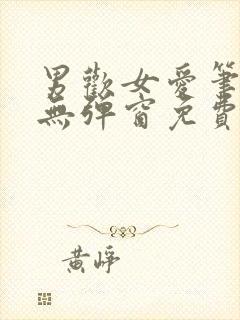 男歡女愛筆
無彈窗免費
黄崢